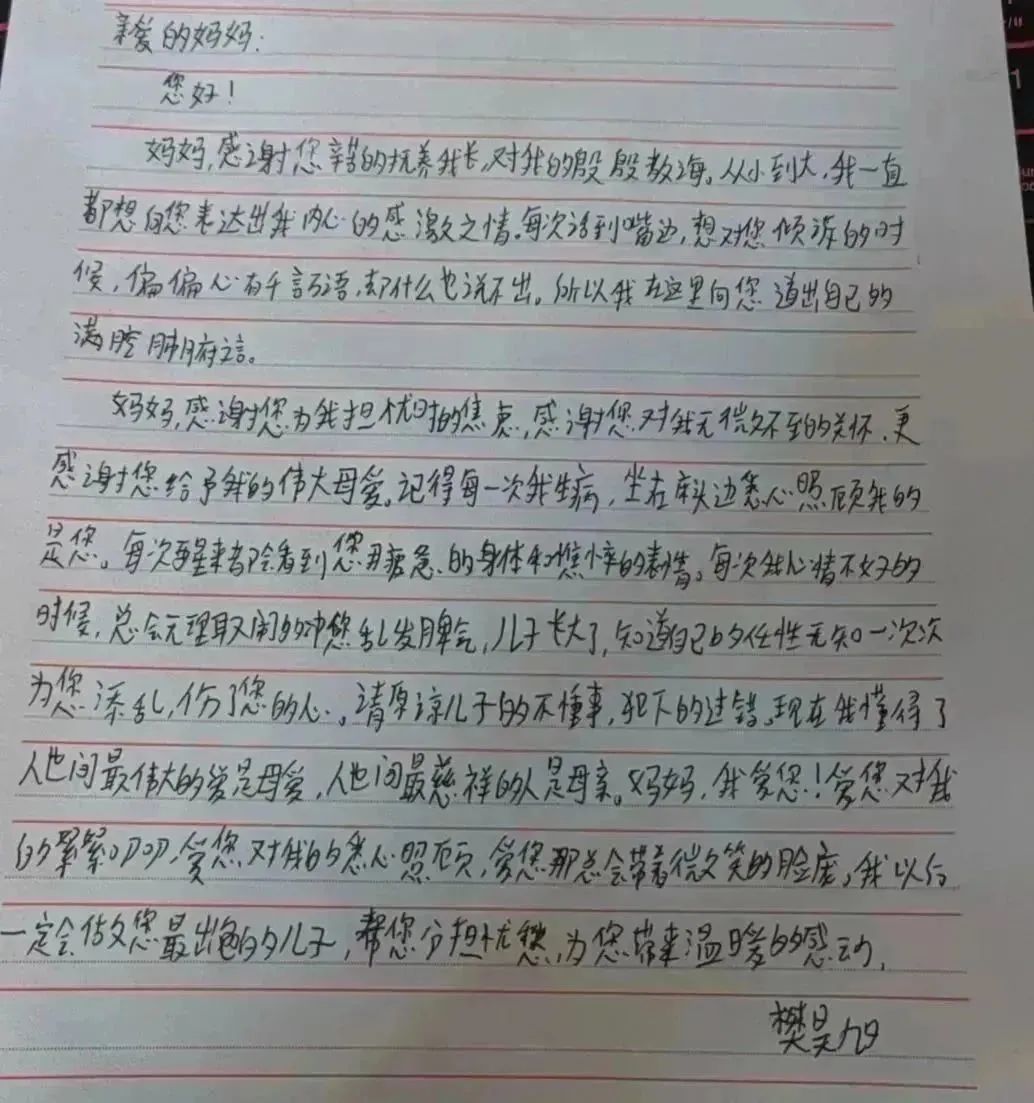 亲爱的妈妈:
您好!
妈妈,感谢您辛苦的抚养我长,对我的殷殷教海。从小到大,我一直
都想向您表达出我内心的感激之情。每次话到嘴边,想对您倾诉的时
候,偏偏心有千言万语,却什么也说不出。所以我在这里向您道出自己的
满腔肺府之言。
妈妈,感谢您为我担忧时的焦虑,感谢您对我无微不至的关怀,更
感谢您给予我的伟大母爱。记得每一次我生病,坐在床头边悉心照顾我的
是您。每次醒来都会看到您用疲惫的身体和憔悴的表情。每次我心情不好的
时候,总会无理取闹的冲您乱发脾气,儿子长大了,知道自己的任性无知一次次
为您添乱,伤了您的心。请原谅儿子的不懂事,犯下的过错。现在我懂得了
人世间最伟大的爱是母爱,人世间最慈祥的人是母亲。妈妈,我爱您!爱您对我
的絮絮叨叨,爱您对我的悉心照顾,爱您那总会带着微笑的脸庞。我以后
一定会做您最出色的儿子,帮您分担忧愁,为您带来温暖的感动,
樊昊旭